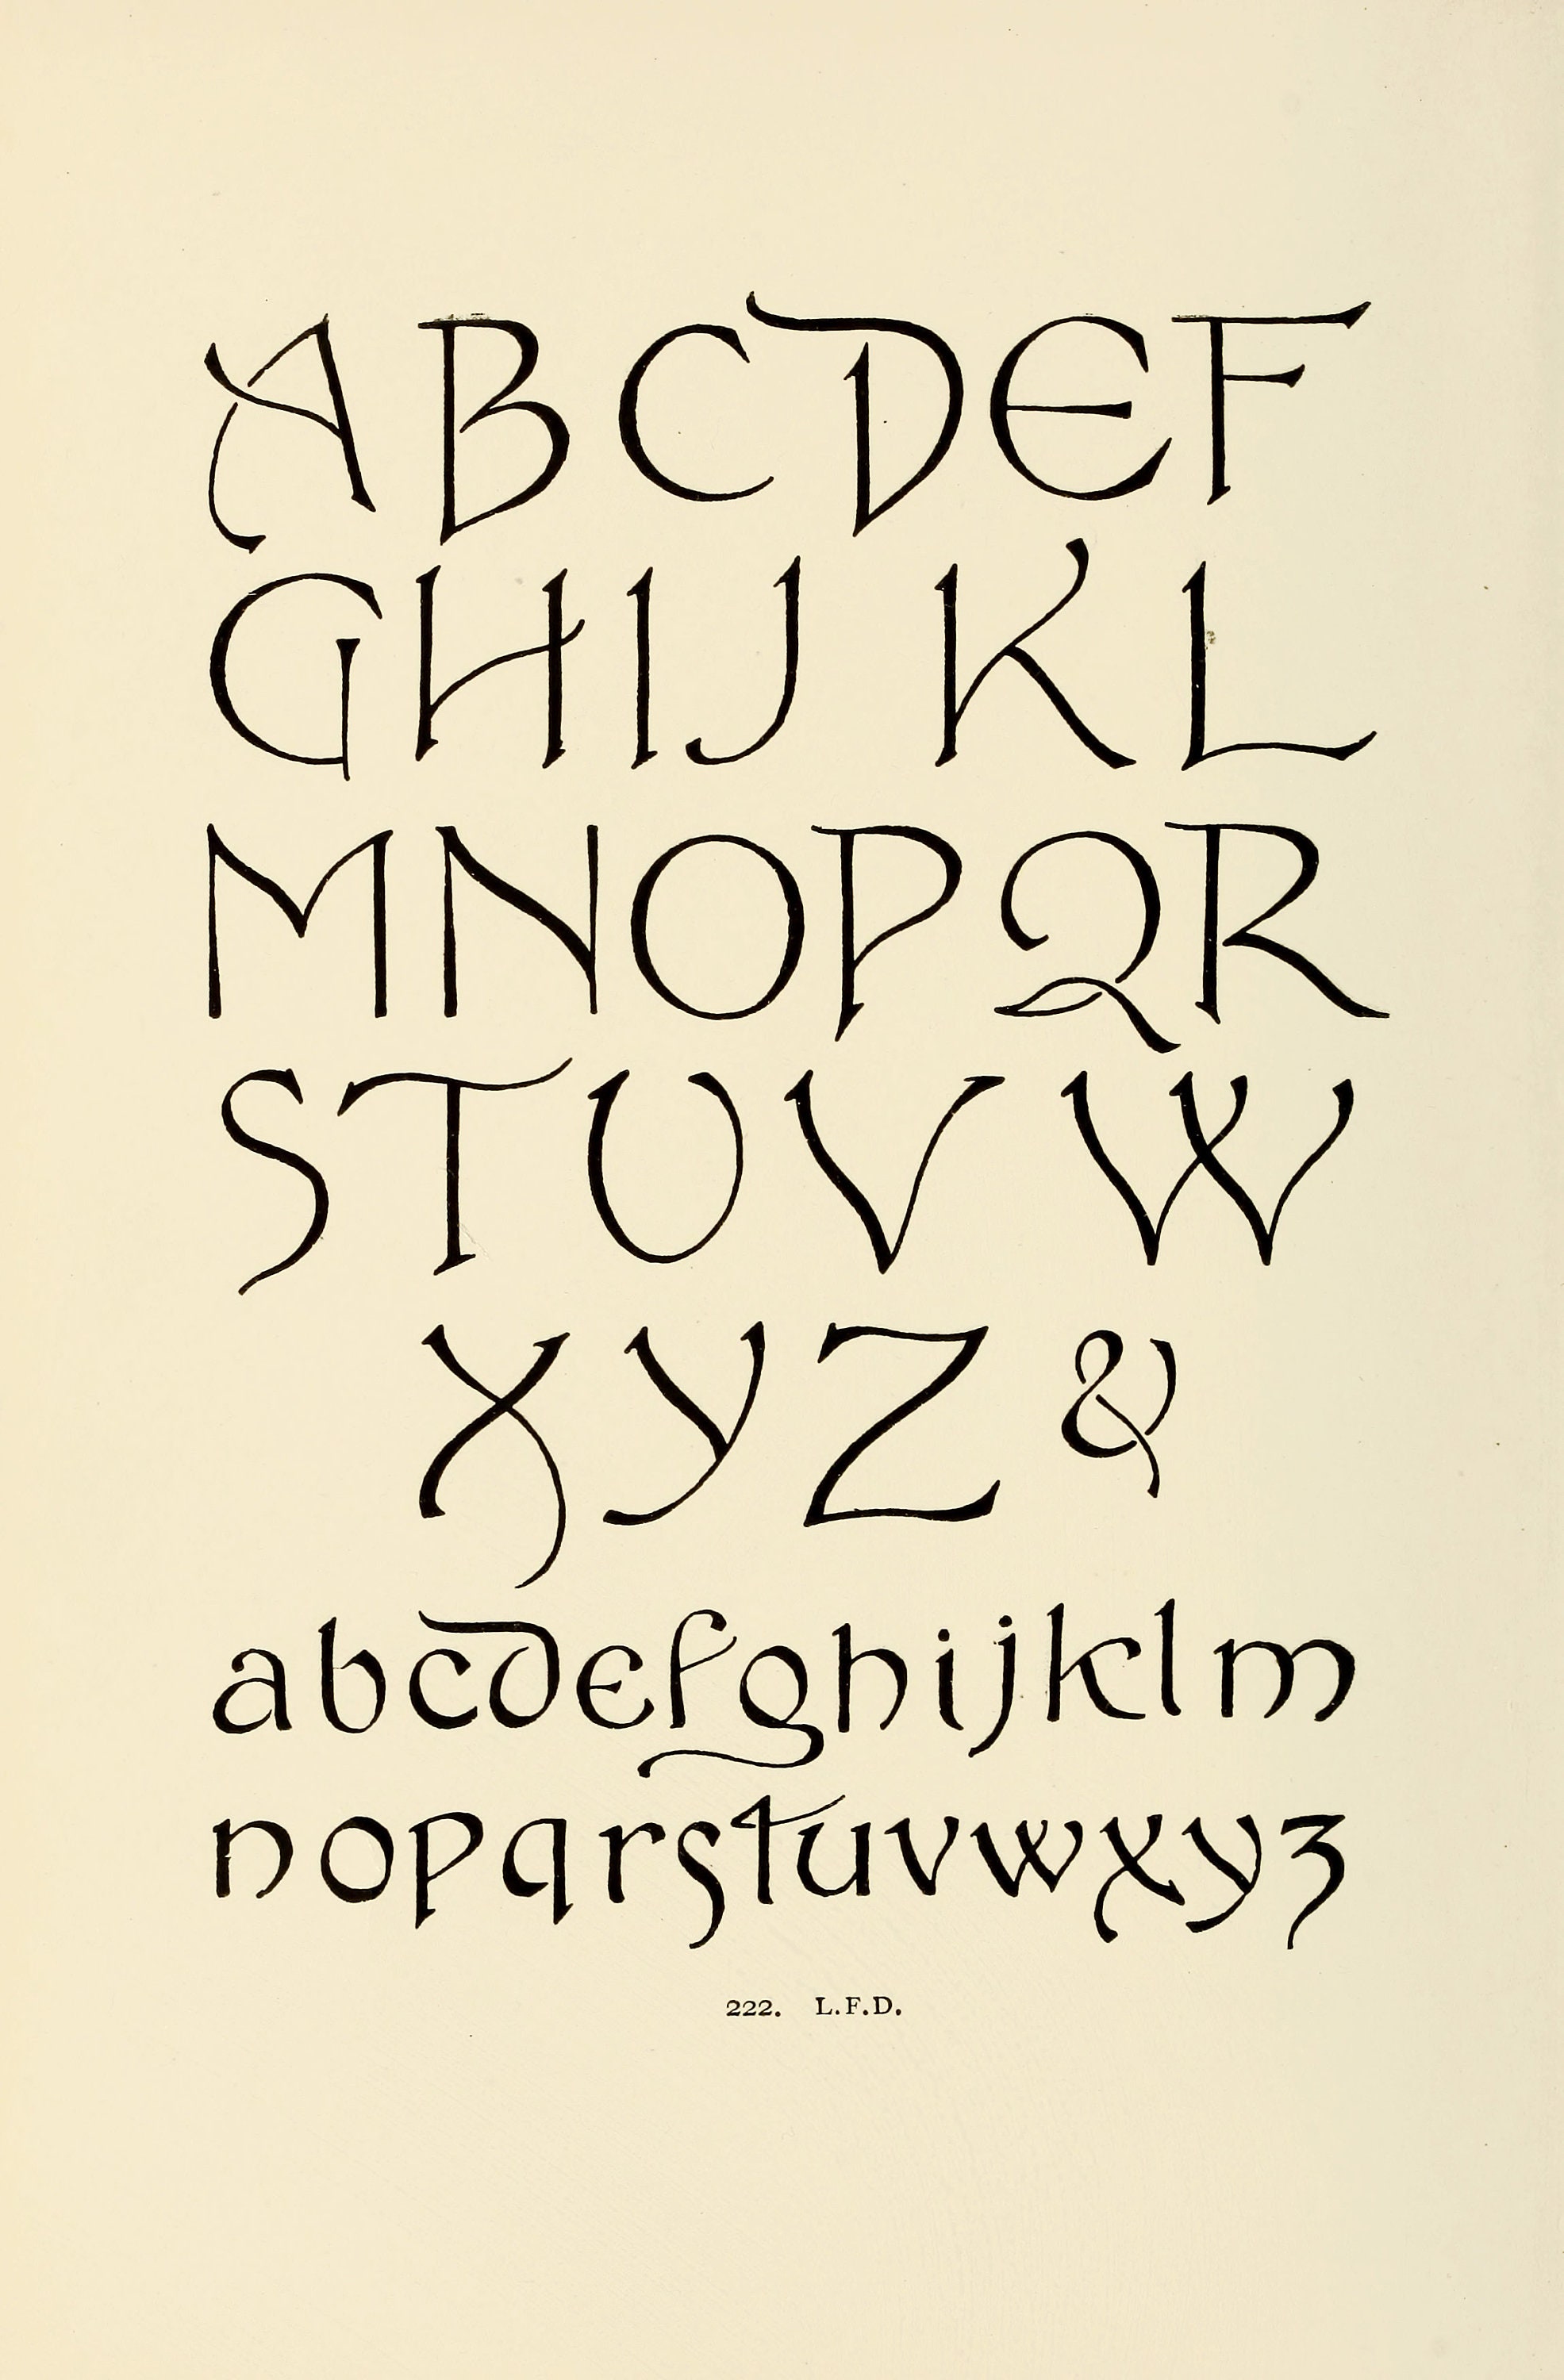 ABCDEF
GHIJKL
MNOPQR
STUVW
XYZ&
abcdefghijklm
nopqrstuvwxyz
222. L.F.D.